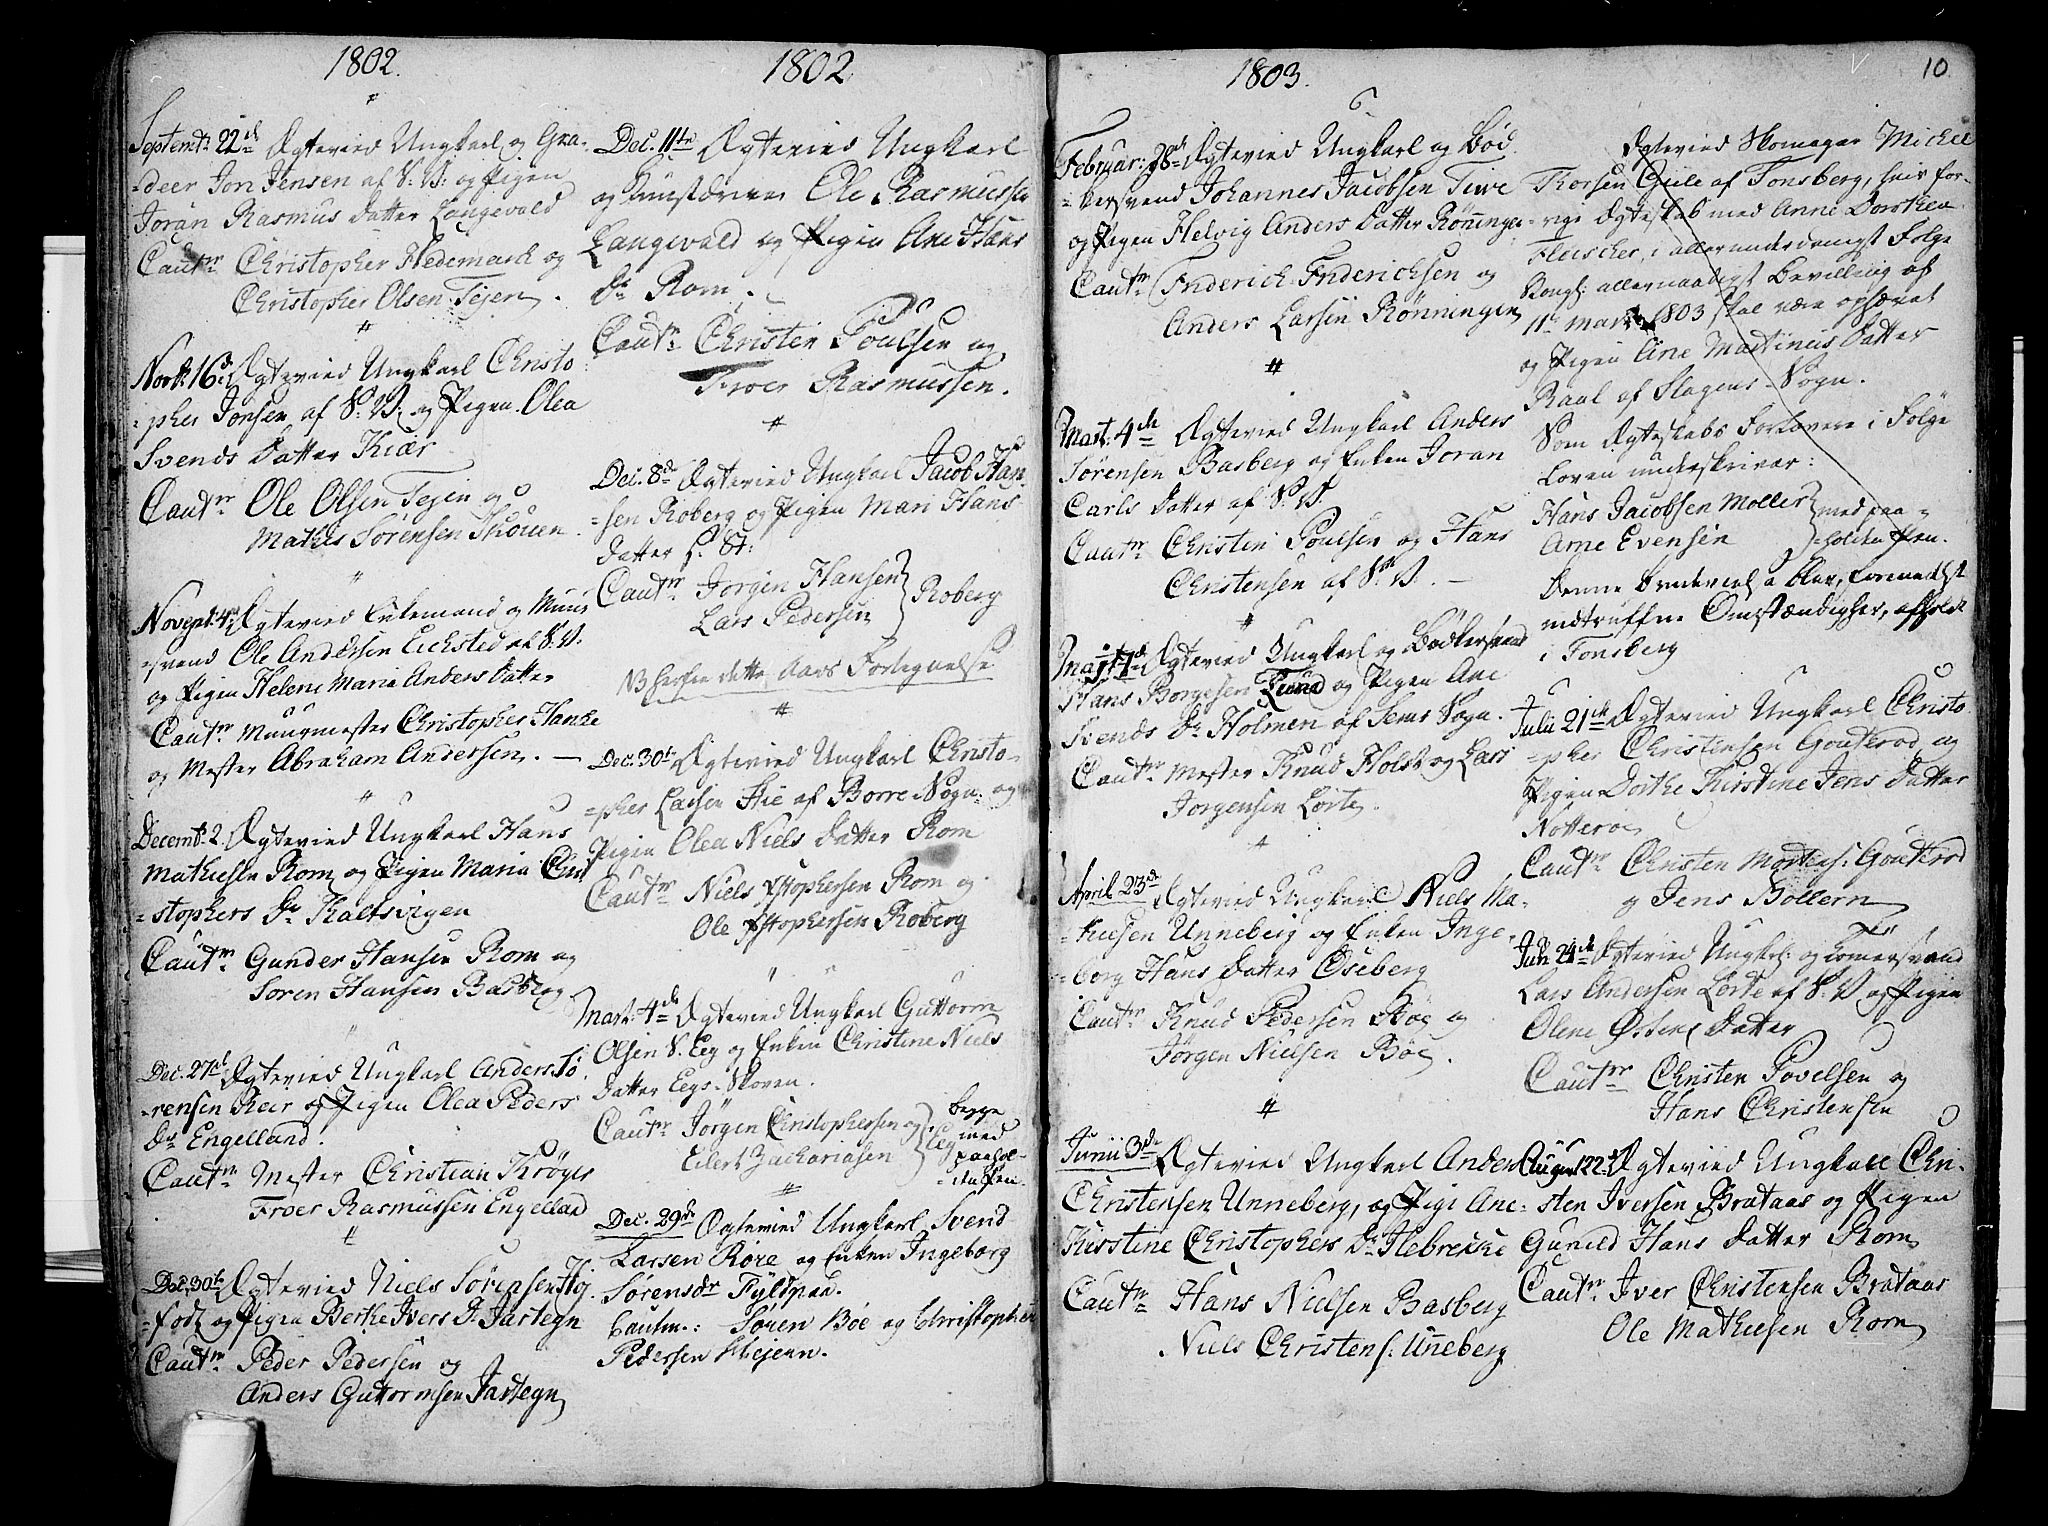 1802.
Septemb: 22de Ægtevied Ungkarl og Gra-
-deer Jon Jensen af S: V: og Pigen
Joran Rasmus Datter Langevald
Cautr Christopher Hedemark og
Christopher Olsen Tejen.
Novb: 16de Ægtevied Ungkarl Christo
=pher Jonsen af S: V: og Pigen Olea
Svends Datter Kiær
Cautr Ole Olsen Tejen og
Mathis Sørensen Skouen.
Novemb: 4de Ægtevied Enkemand og Muur
=svend Ole Andersen Eichsted af S: V.
og Pigen Helene Maria Anders Datter
Cautr Muurmester Christopher Hanche
og Mester Abraham Andersen.
Decemb: 2. Ægtevied Ungkarl Hans
Mathiesen Rom og Pigen Maria Chri
=stophers Dr Kaltsvigen
Cautr Gunder Hansen Rom og
Søren Hansen Basberg
Dec. 27de Ægtevied Ungkarl Anders Sø
=rensen Keir og Pigen Olea Peders
Dr Engelland.
Cautr Mester Christian Krøger
Froer Rasmussen Engelland
Dec. 30te Ægtevied Niels Sørensen Høj
=fodt og Pigen Berthe Ivers Dr Jartegn
Cautr Peder Pedersen og
Anders Guttormsen Jartegn
1802
Dec. 11te Ægtevied Ungkarl
og Ole Rasmussen
Langevald og Pigen Ane Hans
Dr Rom.
Cautr Christen Poulsen og
Froer Rasmussen.
Dec. 8de Ægtevied Ungkarl Jacob Han
=sen Roberg og Pigen Mari Hans
Datter S. St:
Cautr Jørgen Hansen
Lars Pedersen } Roberg
NB herfra dette Aars Fortegnelse
Dec. 30te Ægtevied Ungkarl Christo-
=pher Larsen Stie af Borre Sogn og
Pigen Olea Niels Datter Rom
Cautr Niels Xstophersen Rom og
Ole Xstophersen Roberg
Mart: 4de Ægtevied Ungkarl Guttorm
Olsen S. Eeg og Enken Christine Niels
Datter Eegs-Skoven.
Cautr Jørgen Christophersen og
Eilert Zachariasen } Eeg begge
med
paahol-
=den Pen.
Dec. 29de Ægtevied Ungkarl Svend
Larsen Røre og Enken Ingeborg
Sørensdr Fyldpaa.
Cautr.: Søren Bøe og Christopher
Pedersen Hiejenn.
1803.
Februar: 28de Ægtevied Ungkarl og Bød
=kersvend Johannes Jacobsen Tiwe
og Pigen Helvig Anders Datter Rønninge
Cautr Friderich Friderichsen og
Anders Larsen Rønningen
Mart: 4de Ægtevied Ungkarl Anders
Sørensen Basberg og Enken Joran
Carls Datter af S: V.
Cautr Christen Poulsen og Hans
Christensen af S: V. -
Maji 7de Ægtevied Ungkarl og Bødkersvend
Hans Borgesen Lund og Pigen Ane
Svends Dr Holmen af Sems Sogn.
Cautr Mester Knud Holst og Lars
Jorgensen Lorte.
April 23de Ægtevied Ungkarl Niels Ma-
=thiesen Unneberg og Enken Inge
=borg Hans Datter Oseberg
Cautr Knud Pedersen Bøe og
Jørgen Nielsen Bøe.
Junii 3de Ægtevied Ungkarl Anders
Christensen Unneberg, og Pige Ane
Kirstine Christophers Dr Hebrekke
Cautr Hans Nielsen Basberg
Niels Christens: Unneberg
10
Ægtevied Skomager Michel
Thorsen Gule af Tonsberg, hvis for-
=rige Ægteskab med Anne Dorthea
Fleischer, i allerunderdanigst Følge
Kongl: allernaadigst Bevilling af
11te Marti 1803 skal være ophævet
og Pigen Ane Martinus Datter
Raal af Slagens Sogn.
Som Ægteskabs Forlovere i Følge
Loven underskriver:
Hans Jacobsen Moller
Arne Evensen } med paa-
=holden Pen.
Denne Brudeviel­se blev, formedelst
indtrufne Omstændigher, afholdt
i Tonsberg
Julii 21de Ægtevied Ungkarl Christo
=pher Christensen Gouterod og
Pigen Dorthe Kirstine Jens Datter
Nøtterøe
Cautr Christen Mortens: Gouterod
og Jens Bollern
Jun 24de Ægtevied Ungk: og
Lars Andersen Lorte af S: V. og Pigen
Olene Østens Datter
Cautr Christen Povelsen og
Hans Christensen
August 22de Ægtevied Ungkarl Chri-
=sten Iversen Brataas og Pigen
Gunild Hans Datter Rom
Cautr Iver Christensen Brataas
Ole Mathiesen Rom